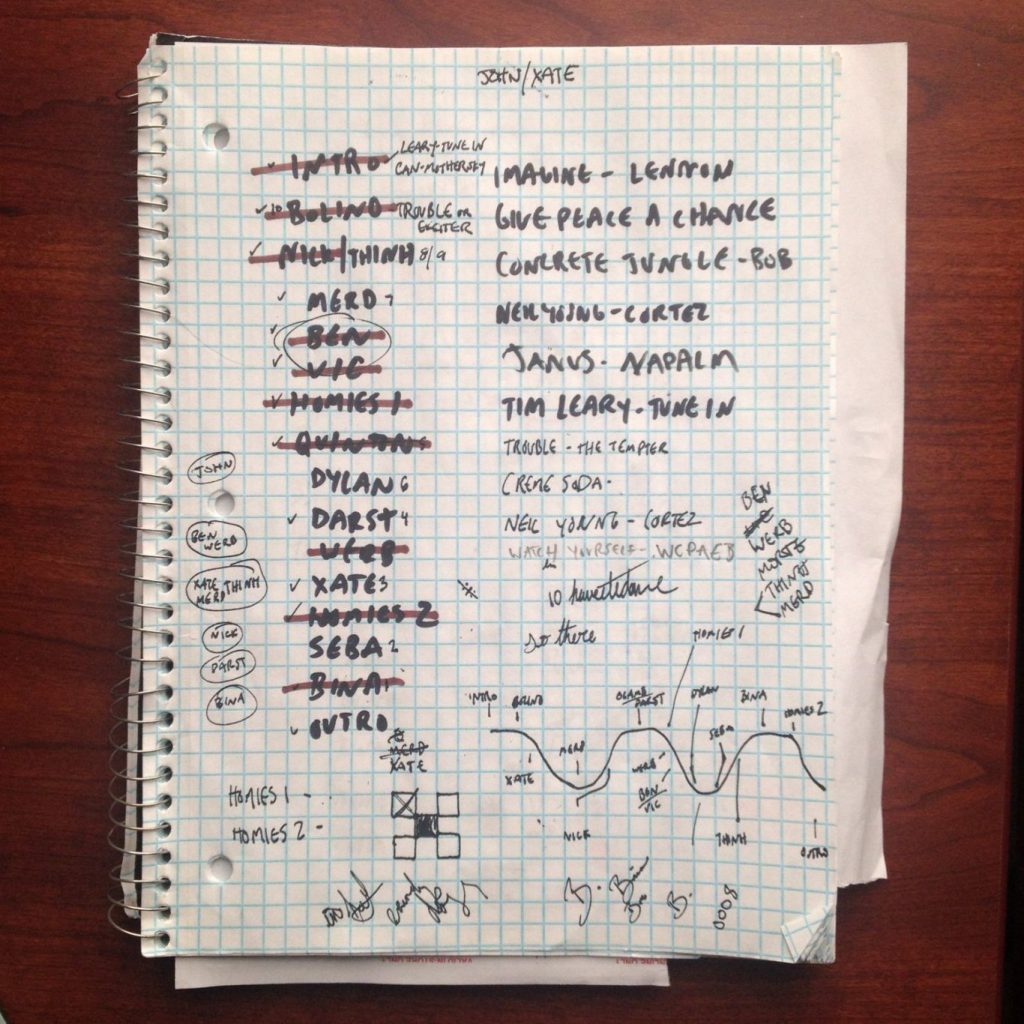 JOHN/XATE
INTRO
LEARY-TUNE IN
CAN-MOTHERSKY
IMAGINE - LENNON
10 BOLINO
TROUBLE OR
EXCITER
GIVE PEACE A CHANCE
NICK/THINH 8/9
CONCRETE JUNGLE - BOB
MERD 7
NEIL YOUNG - CORTEZ
BEN
VIC
JANUS - NAPALM
HOMIES 1
TIM LEARY - TUNE IN
QUINTON
TROUBLE - THE TEMPTER
JOHN
DYLAN 6
CREME SODA -
DARST 4
NEIL YOUNG - CORTEZ
BEN
WERB
WERB
WATCH YOURSELF - WCPAEB
BEN
WERB
THINH
MERD
XATE
MERD THINH
XATE 3
HOMIES 2
NICK
SEBA 2
so there
DARST
BINA 1
BINA
OUTRO
HOMIES 1
INTRO
DARST
DYLAN
BINA
HOMIES 2
SEBA
MERD
XATE
XATE
MERD
WERB
BEN
VIC
NICK
THINH
OUTRO
HOMIES 1 -
HOMIES 2 -
B.
0008